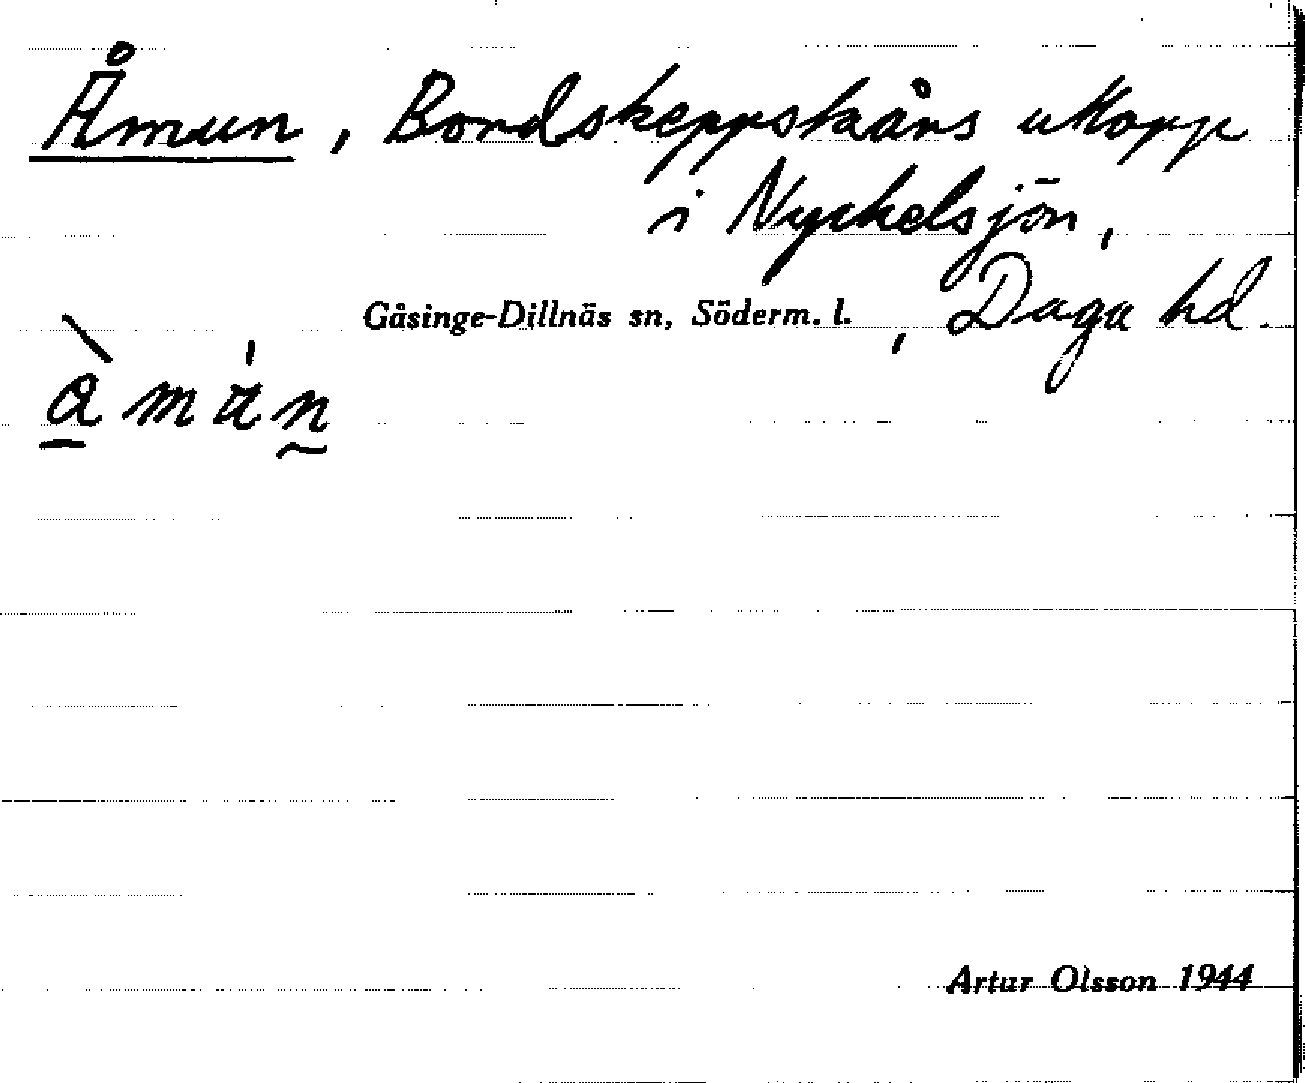 Åmun, Bordskeppstaåns utlopp
i Nyckelsjön,
Gåsinge-Dillnäs sn, Söderm. l., Daga hd.
Artur Olsson 1944